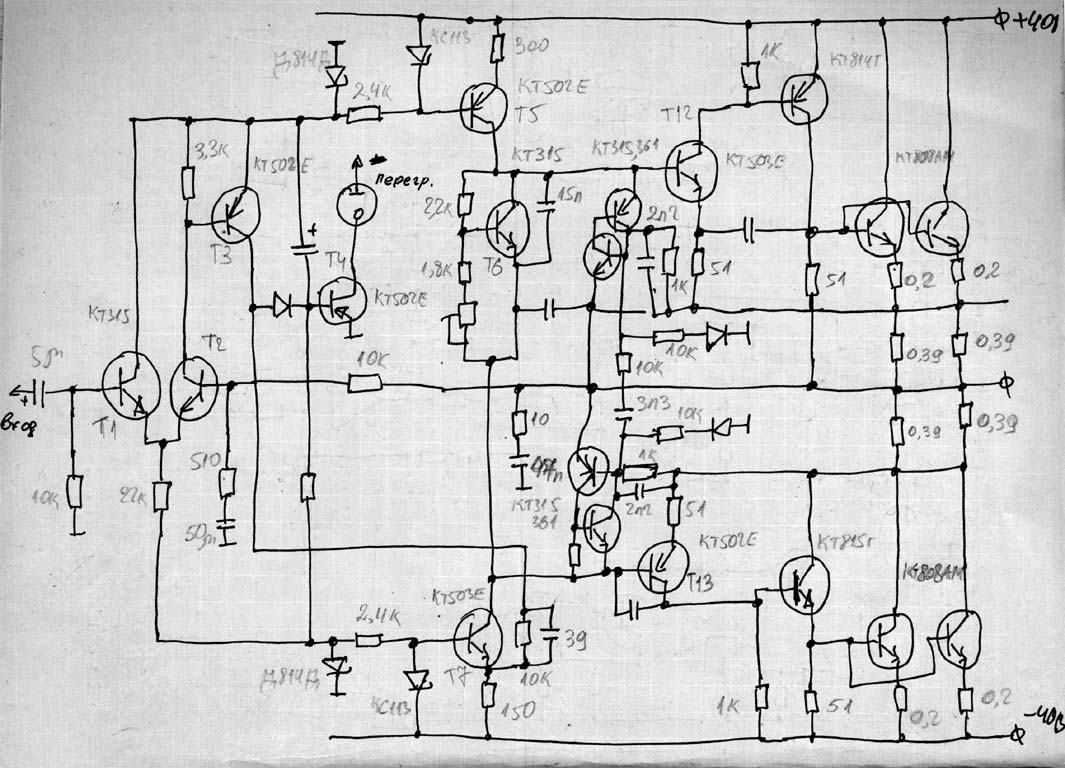 +40В
КС113
Д814Д
300
1К
КТ814Г
2,4К
КТ502Е
Т5
Т12
3,3К
КТ502Е
КТ315
КТ315,361
КТ503Е
КТ808АМ
перегр.
22К
15п
2п2
+
Т3
Т4
Т6
1,8К
51
1К
51
0,2
0,2
КТ502Е
КТ315
Т2
10К
10К
10К
0,39
0,39
5м
+
Вход
Т1
10
3п3
10К
0,39
0,39
510
47п
1К
10К
22К
50м
КТ315
361
2п2
51
КТ502Е
КТ815Г
Т13
КТ808АМ
КТ503Е
2,4К
39
Д814Д
Т7
10К
КС113
150
1К
51
0,2
0,2
-40В